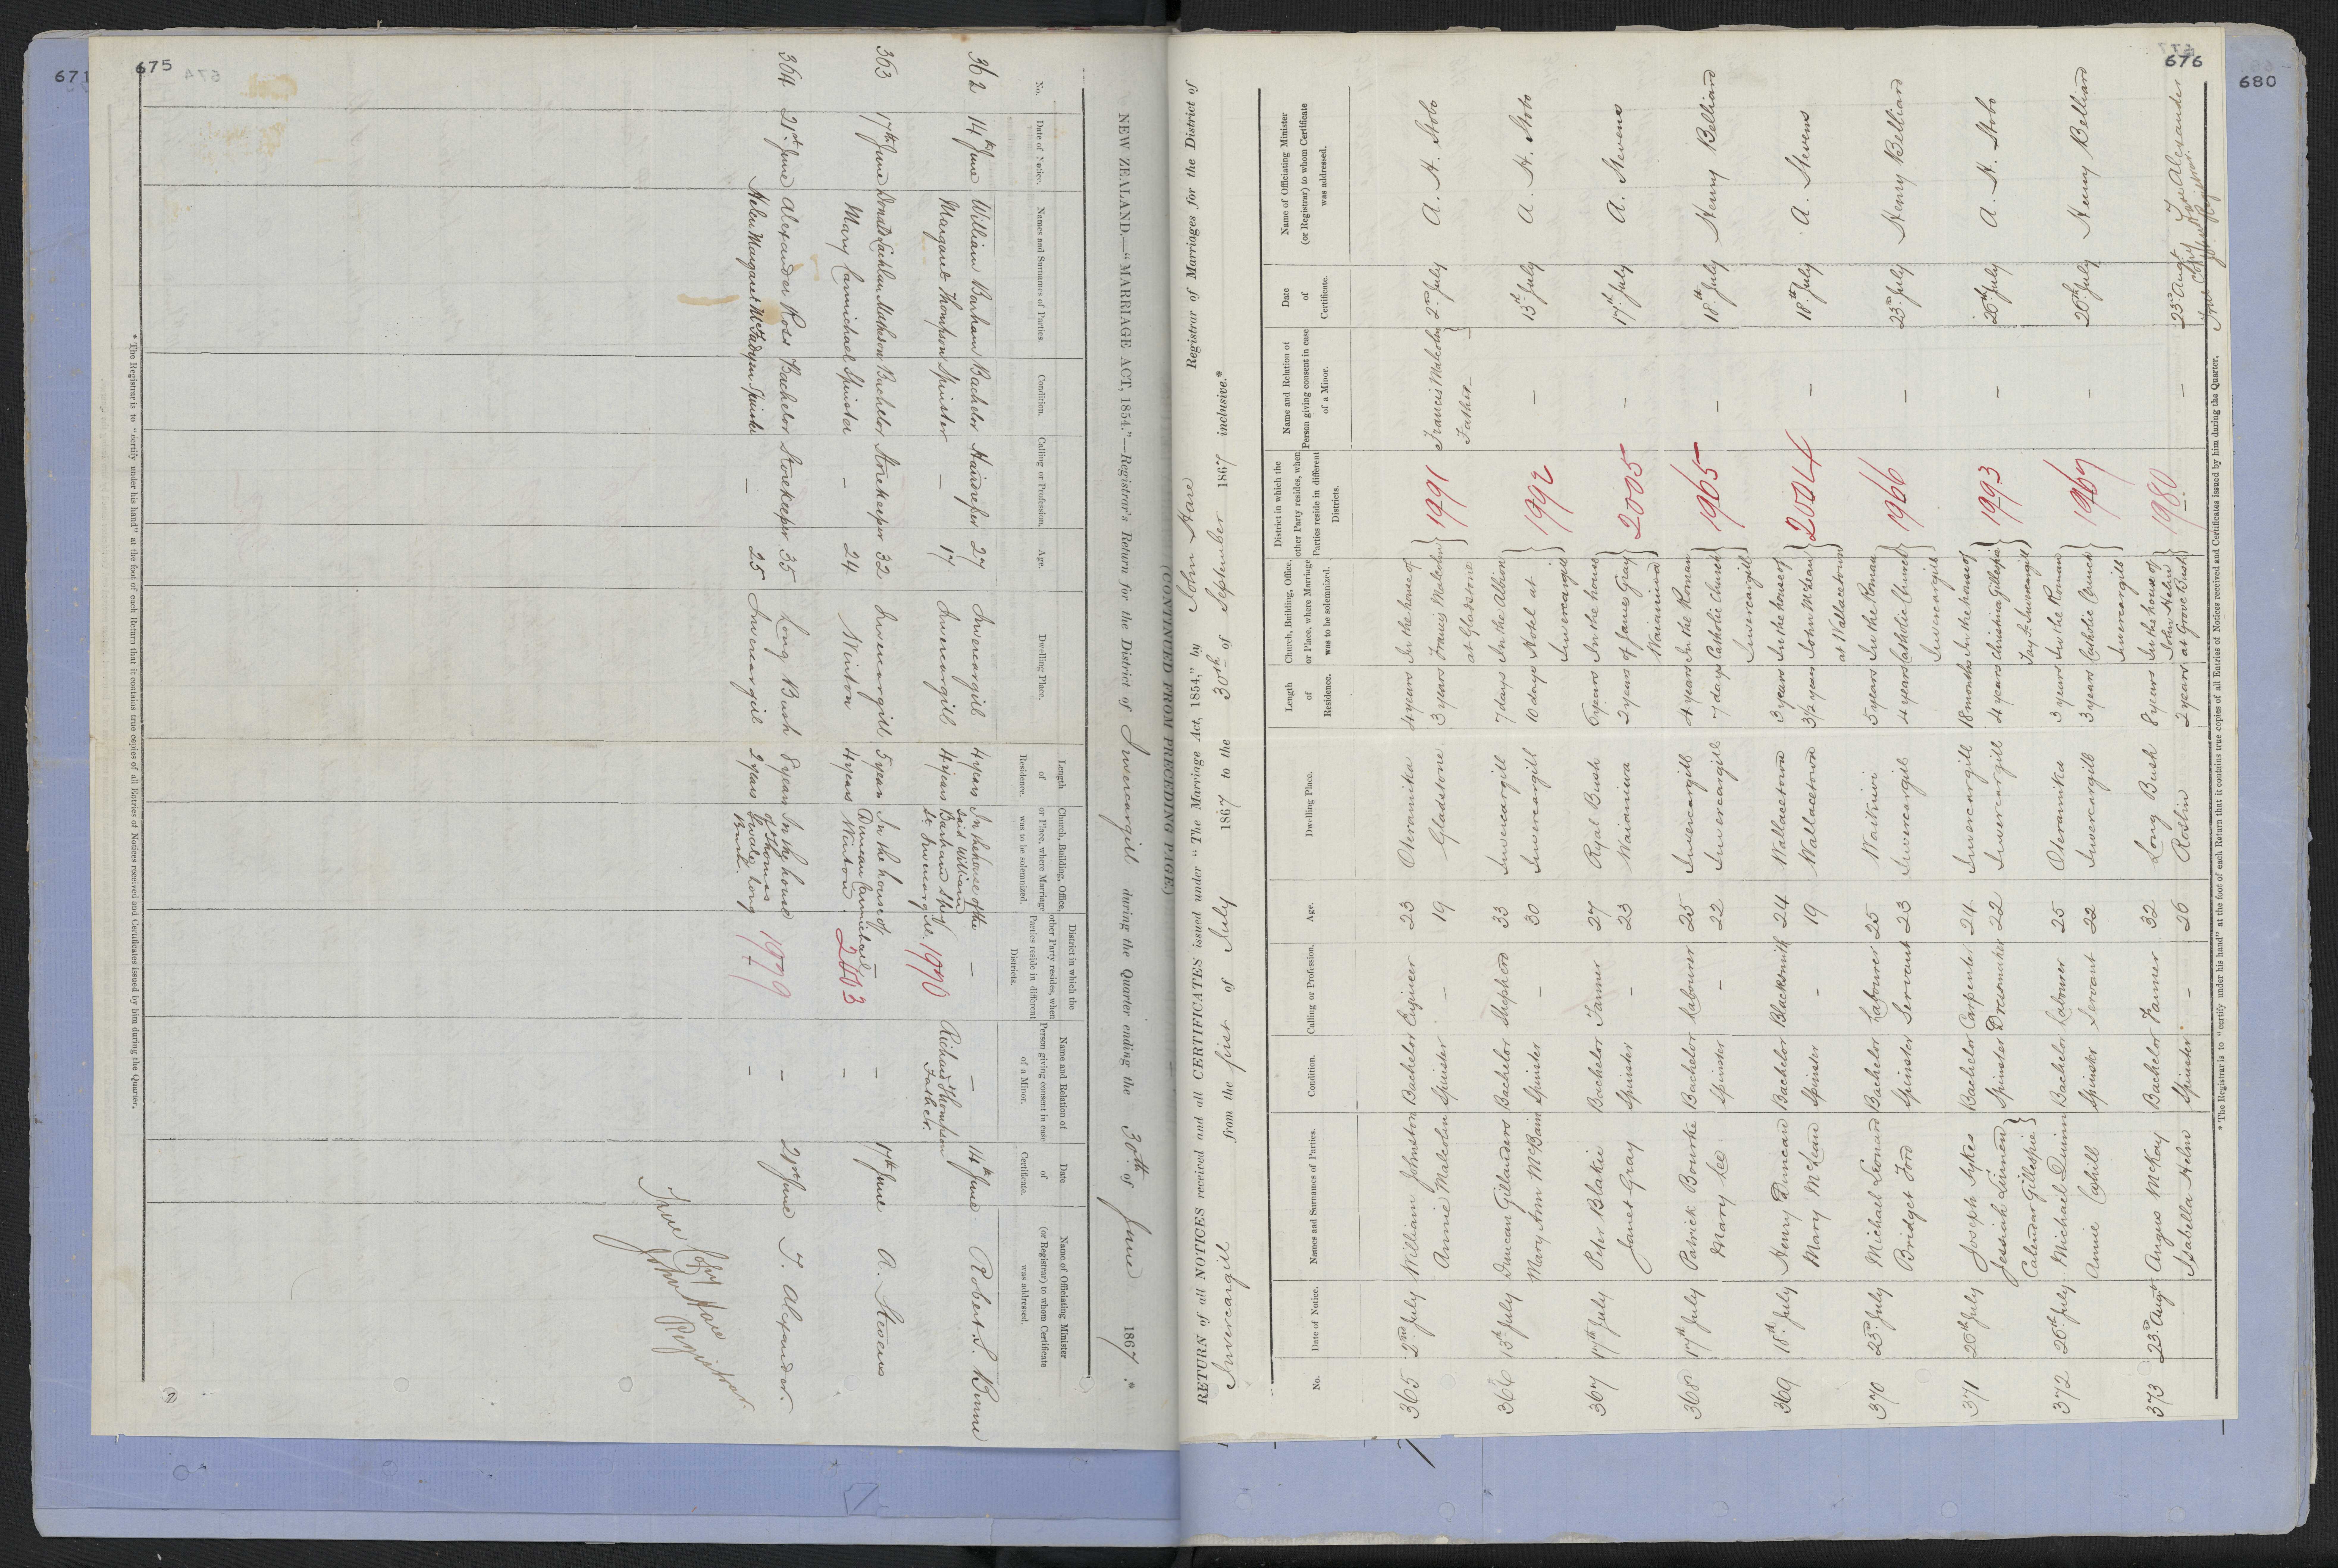 671
675
(CONTINUED FROM PRECEDING PAGE.)
NEW ZEALAND.—"MARRIAGE ACT, 1854."—Registrar's Return for the District of Invercargill during the Quarter ending the 30th of June 1867.*
No. Date of Notice. Names and Surnames of Parties. Condition. Calling or Profession. Age. Dwelling Place. Length of Residence. Church, Building, Office, or Place, where Marriage was to be solemnized. District in which the other Party resides, when Parties reside in different Districts. Name and Relation of Person giving consent in case of a Minor. Date of Certificate. Name of Officiating Minister (or Registrar) to whom Certificate was addressed.
362 14th June William Barham Bachelor 27 Invercargill 4 years In the house of the — — 14th June Robert S. Bunne
said William
Margaret Thompson Spinster — 17 Invercargill 4 years Barham Spey Richard Thompson
St Invercargill. 1970 Father.
363 17th June Donald Lachlan Matheson Bachelor Storekeeper 32 Invercargill 5 years In the house of — — 17th June A. Stevens
Duncan Carmichael
Mary Carmichael Spinster — 24 Winton 4 years Winton. 2003 —
364 21st June Alexander Ross Bachelor Storekeeper 35 Long Bush 8 years In the house — 21st June T. Alexander.
of Thomas
Helen Margaret McFadyen Spinster — 25 Invercargill 2 years Swale Long 1979 —
Bush.
True Copy
John Hare
Registrar
* The Registrar is to "certify under his hand" at the foot of each Return that it contains true copies of all Entries of Notices received and Certificates issued by him during the Quarter.
676
680
RETURN of all NOTICES received and all CERTIFICATES issued under "The Marriage Act, 1854," by John Hare Registrar of Marriages for the District of
Invercargill from the first of July 1867 to the 30th of September 1867 inclusive.*
No. Date of Notice. Names and Surnames of Parties. Condition. Calling or Profession. Age. Dwelling Place. Length of Residence. Church, Building, Office, or Place, where Marriage was to be solemnized. District in which the other Party resides, when Parties reside in different Districts. Name and Relation of Person giving consent in case of a Minor. Date of Certificate. Name of Officiating Minister (or Registrar) to whom Certificate was addressed.
365 2nd July William Johnston Bachelor Engineer 23 Oteramika 4 years In the house of 1991 Francis Malcolm 2nd July A. H. Stobo
Annie Malcolm Spinster — 19 Gladstone 3 years Francis Malcolm Father
at Gladstone
366 13th July Duncan Gillanders Bachelor Shepherd 33 Invercargill 7 days In the Albion 1992 — 13th July A. H. Stobo
Mary Ann McBain Spinster — 30 Invercargill 10 days Hotel at
Invercargill
367 17th July Peter Blakie Bachelor Farmer 27 Ryal Bush 6 years In the house 2005 — 17th July A. Stevens
Janet Gray Spinster — 23 Waianiwa 2 years of James Gray
Waianiwa
368 17th July Patrick Bourke Bachelor Labourer 25 Invercargill 4 years In the Roman 1965 — 18th July Henry Belliard
Mary Lee Spinster — 22 Invercargill 7 days Catholic Church
Invercargill
369 18th July Henry Duncan Bachelor Blacksmith 24 Wallacetown 3 years In the house of 2004 — 18th July A. Stevens
Mary McLean Spinster — 19 Wallacetown 3½ years John McLean
at Wallacetown
370 23rd July Michael Leonard Bachelor Labourer 25 Waikiwi 5 years In the Roman 1966 — 23rd July Henry Belliard
Bridget Ford Spinster Servant 23 Invercargill 4 years Catholic Church
Invercargill
371 26th July Joseph Sykes Bachelor Carpenter 24 Invercargill 18 months In the house of 1993 — 26th July A. H. Stobo
Jessiah Spinster Dressmaker 22 Invercargill 4 years Christina Gillespie
Calendar Gillespie Tay St Invercargill
372 26th July Michael Quinn Bachelor Labourer 25 Oteramika 3 years In the Roman 1967 — 26th July Henry Belliard
Annie Cahill Spinster Servant 22 Invercargill 3 years Catholic Church
Invercargill
373 23rd Augt Angus McKay Bachelor Farmer 32 Long Bush 8 years In the house of 1980 — 23rd Augt T. Alexander
John Helm
Isabella Helm Spinster — 26 Roslin 2 years at Grove Bush
True Copy John Hare Registrar
* The Registrar is to "certify under his hand" at the foot of each Return that it contains true copies of all Entries of Notices received and Certificates issued by him during the Quarter.